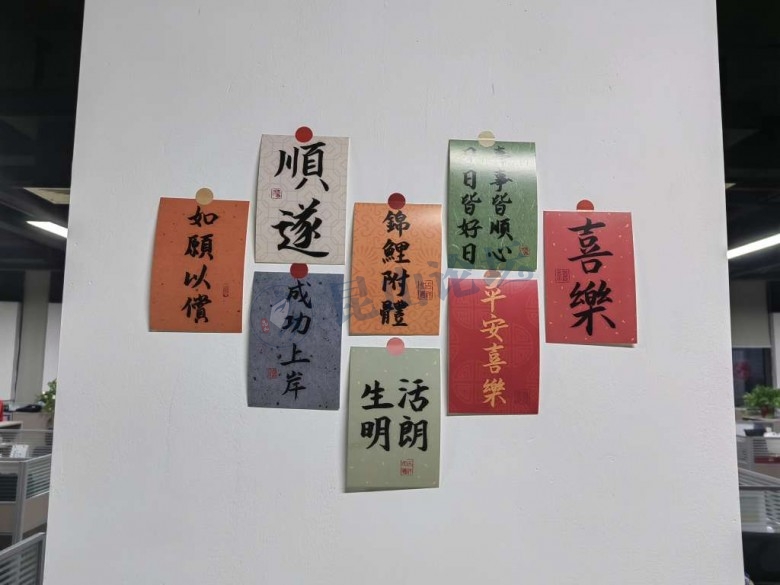 如願以償
順遂
成功上岸
錦鯉附體
生活
明朗
事事皆順心
日日皆好日
平安喜樂
喜樂